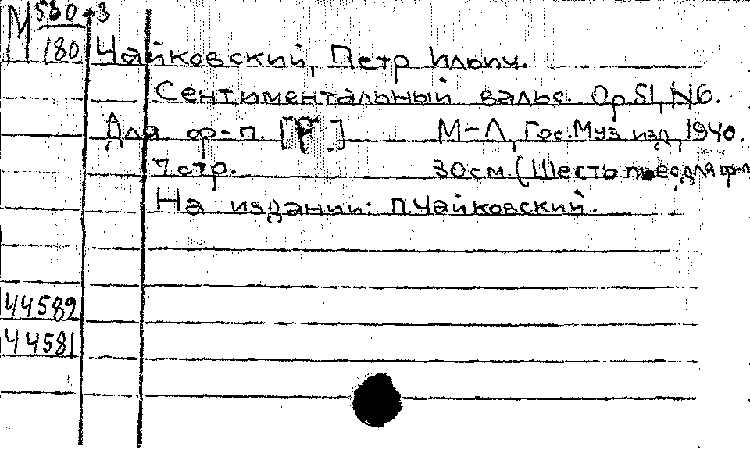 М 560-3
180
Чайковский, Петр Ильич.
Сентиментальный вальс. Op.51, №6.
Для ф-п. [Р] М-Л, Гос. Муз. изд, 1940.
7 стр. 30см. (Шесть пьес для ф-п
На издании: П.Чайковский.
44582
44581